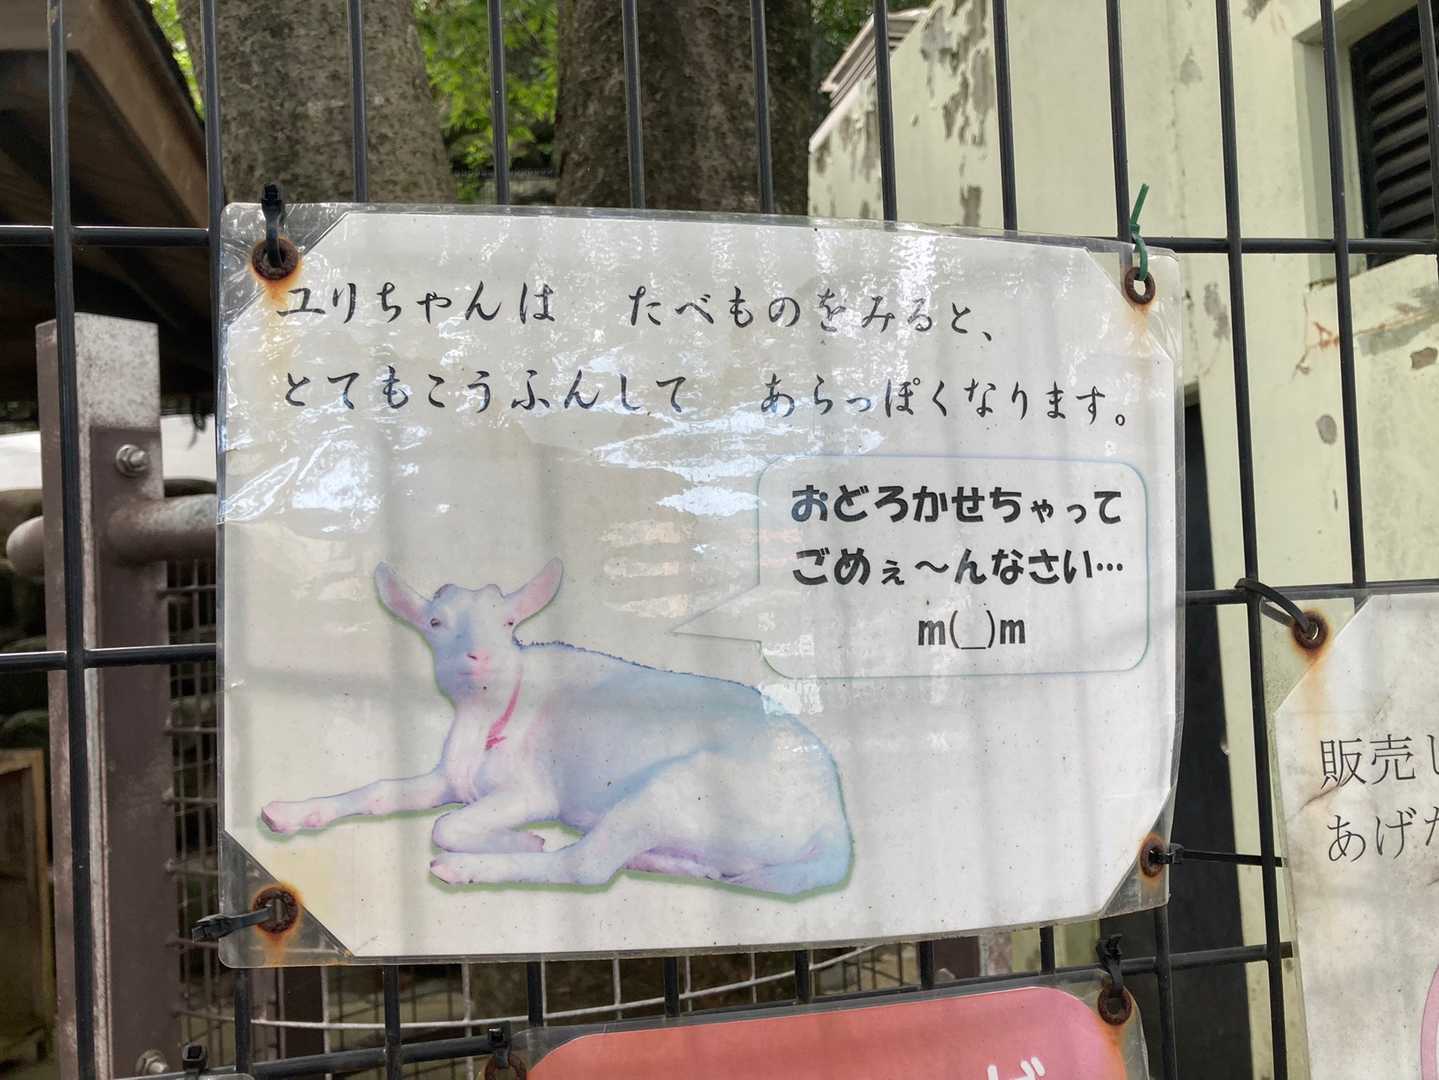 ユリちゃんは　たべものをみると、
とてもこうふんして　あらっぽくなります。
おどろかせちゃって
ごめぇ～んなさい…
m(_)m
販売し
あげた